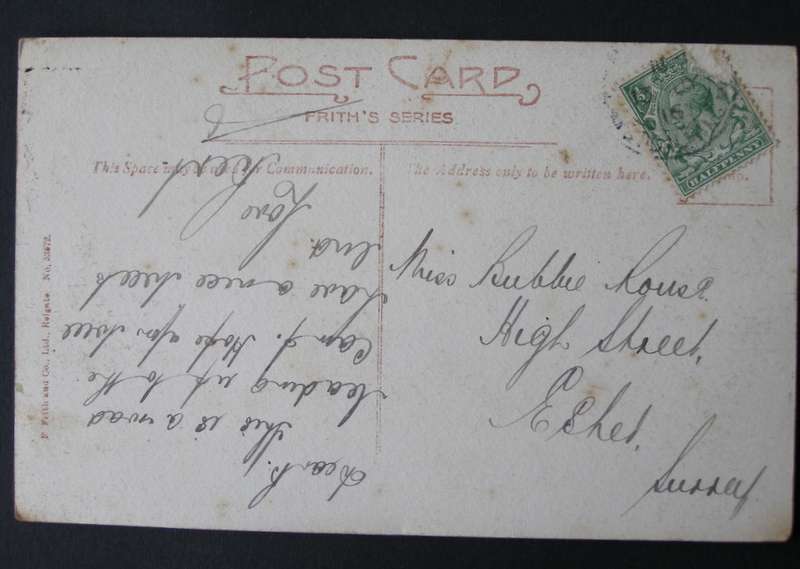 POST CARD
FRITH'S SERIES
This Space may be used for Communication.
The Address only to be written here.
HALFPENNY
F. Frith and Co., Ltd., Reigate No. 33672.
Miss Bubbie Rouse.
High Street,
Esher,
Surrey
This is a road
leading up to the
Camp. Hope you will
have a nice week
end.
Love